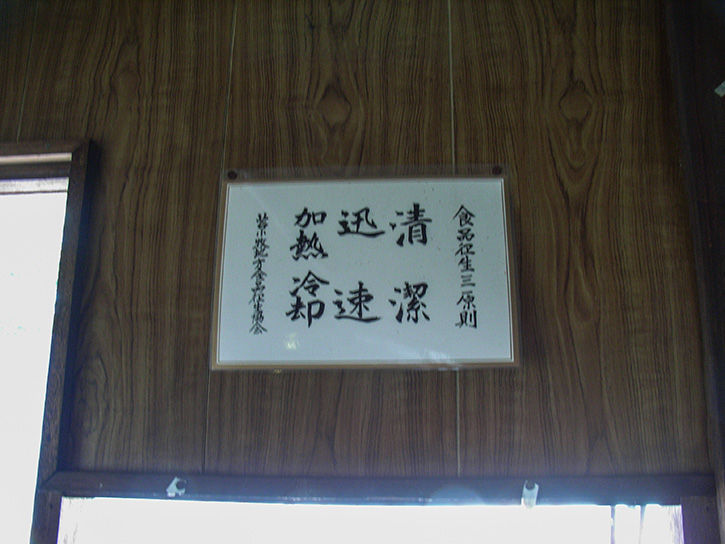 食品衛生三原則
清潔
迅速
加熱冷却
苫小牧地方食品衛生協会